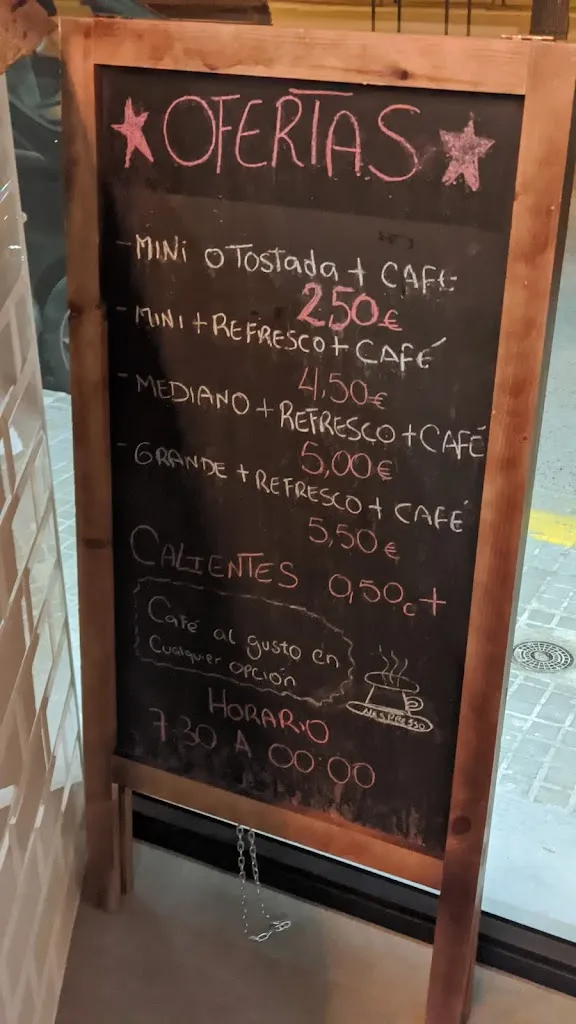 OFERTAS
- MINI O TOSTADA + CAFE
2,50€
- MINI + REFRESCO + CAFÉ
4,50€
- MEDIANO + REFRESCO + CAFÉ
5,00€
- GRANDE + REFRESCO + CAFÉ
5,50€
CALIENTES 0,50€ +
Café al gusto en
Cualquier opción
NESPRESSO
HORARIO
7:30 A 00:00